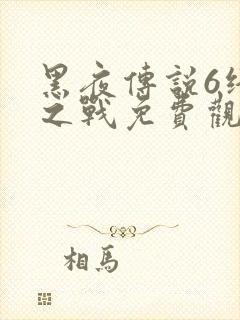 黑夜傳説6
之戰免費觀
相馬